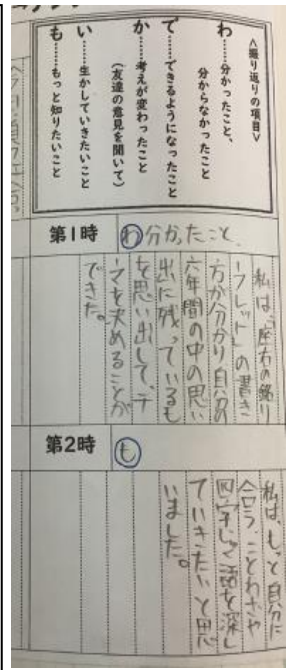 <振り返りの項目>
わ……分かったこと、
分からなかったこと
で……できるようになったこと
か……考えが変わったこと
(友達の意見を聞いて)
い……生かしていきたいこと
も……もっと知りたいこと
第1時
わ分かったこと。
私は、「座右の銘リ
ーフレット」の書き
方が分かり自分の
六年間の中の思い
出に残っているも
を思い出して、テ
ーマを決めることが
できた。
第2時
も
私は、もっと自分に
合う、ことわざや
四字じゅく語を深し
ていきたいと思
いました。